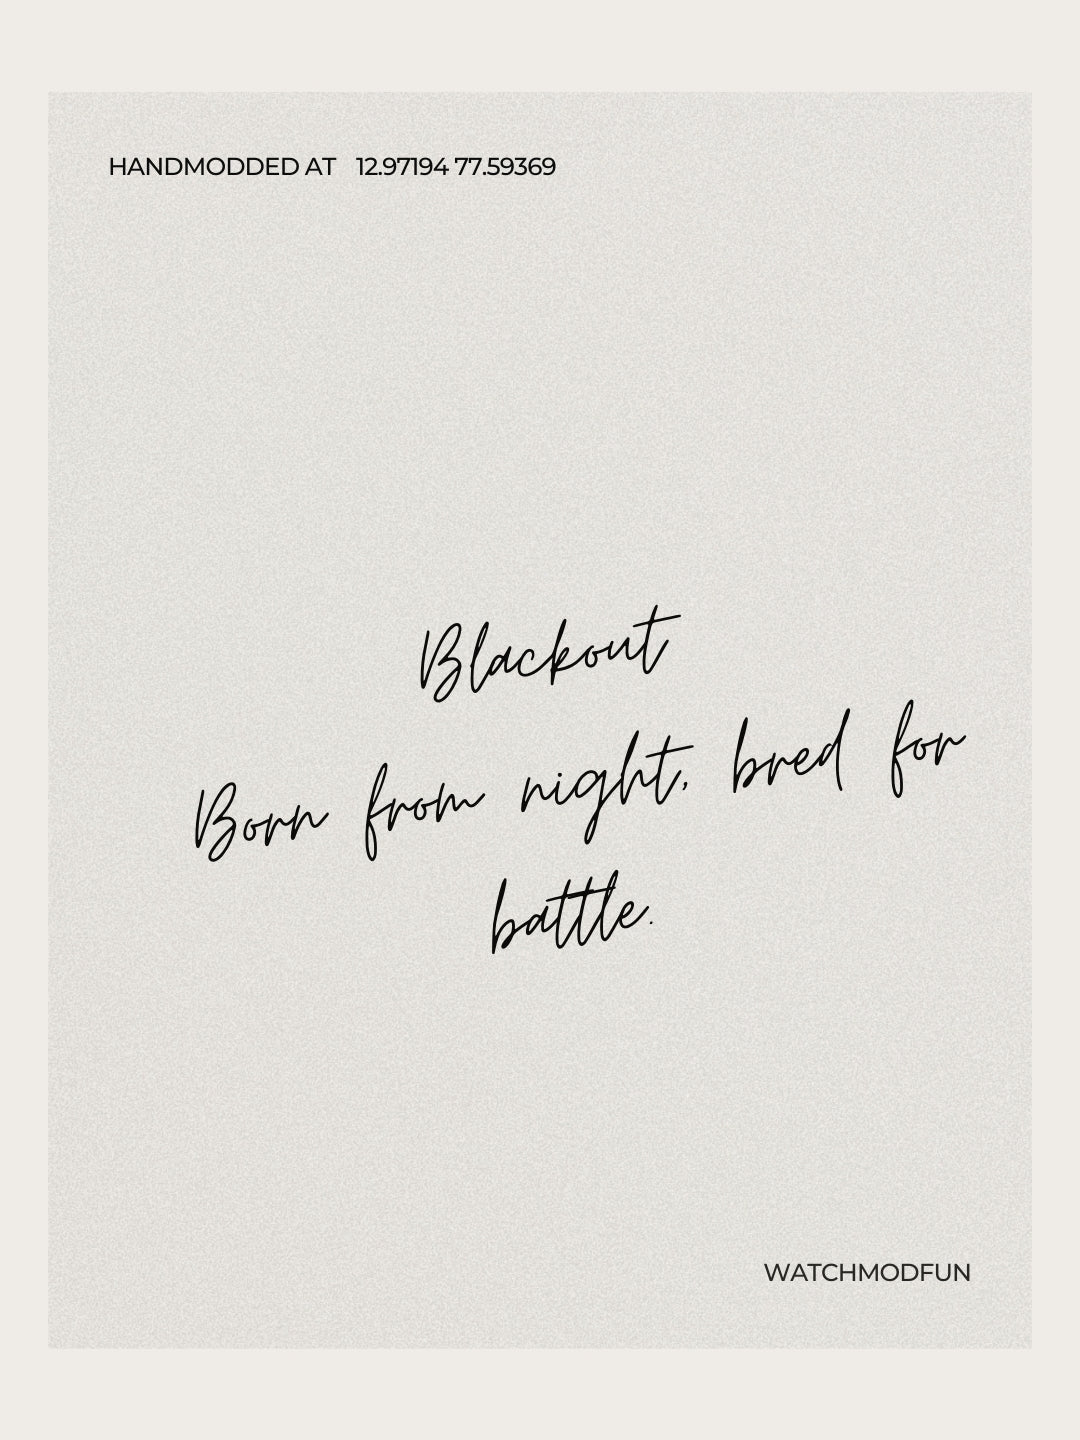 HANDMODDED AT 12.97194 77.59369
Blackout
Born from night, bred for
battle.
WATCHMODFUN